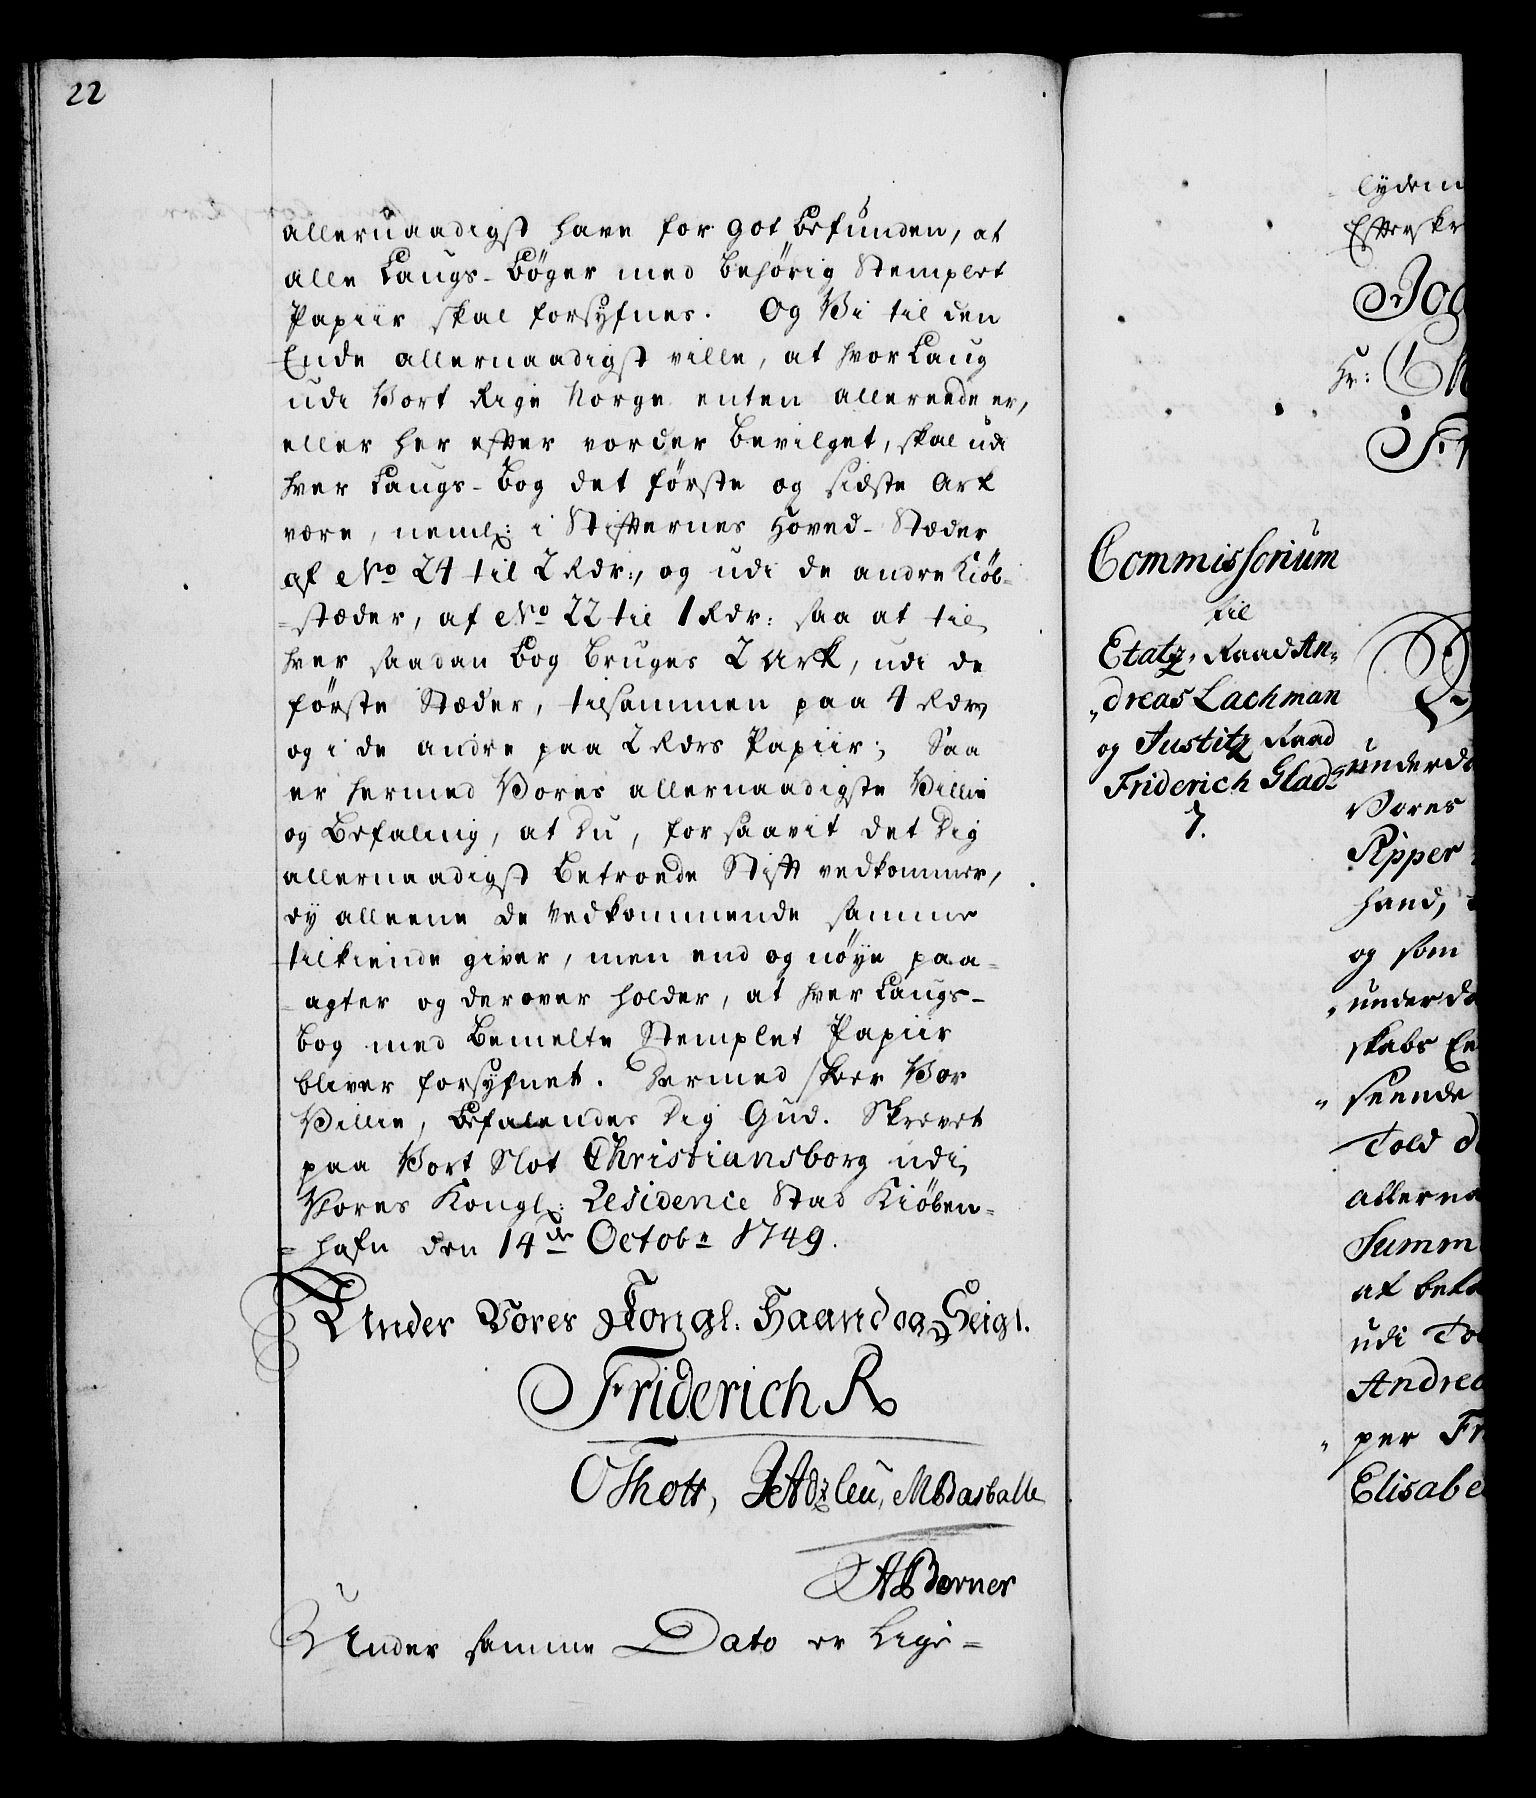 22
allernaadigst have for got befunden, at
alle Laugs-Bøger med behørig Stemplet
Papiir skal forsyfnes. Og Vi til den
Ende allernaadigst ville, at hvor Laug
udi Vort Rige Norge enten allereede er,
eller her efter vorder bevilget, skal udi
hver Laugs-Bog det første og sidste Ark
være, neml: i Stifternes Hoved-Stæder
af No 24 til 2 Rdr:, og udi de andre Kiøb-
=stæder, af No 22 til 1 Rdr: saa at til
hver saadan Bog bruges 2 Ark, udi de
første Stæder, tilsammen paa 4 Rdrs
og i de andre paa 2 Rdrs Papiir; Saa
er hermed Vores allernaadigste Villie
og Befaling, at Du, for saavit det Dig
allernaadigst betroede Stift vedkommer,
ey alleene de Vedkommende samme
tilkiende giver, men end og nøye paa-
-agter og derover holder, at hver Laugs-
bog med bemelte Stemplet Papiir
bliver forsyfnet. Dermed skeer Vor
Villie, Befalendes Dig Gud. Skrevet
paa Vort Slot Christiansborg udi
Vores Kongl: Residence Stad Kiøben-
=hafn den 14de Octobr 1749.
Under Vores Kongl. Haand og Seigl.
Friderich R
OThott, JAdzleu, MBasballe
ABerner
Under samme Dato er Lige=
Commissorium
til
Etatz-Raad An-
"dreas Lachman
og Justitz Raad
Friderich Glads
7.
lydem
Efterskr
Jog
Hr:
Fr
underda
Vores
Ripper
haand,
og som
"underda
skabs En
"seende
Told d
allerna
Summ
at beta
udi To
Andrea
"per Fr
Elisabe